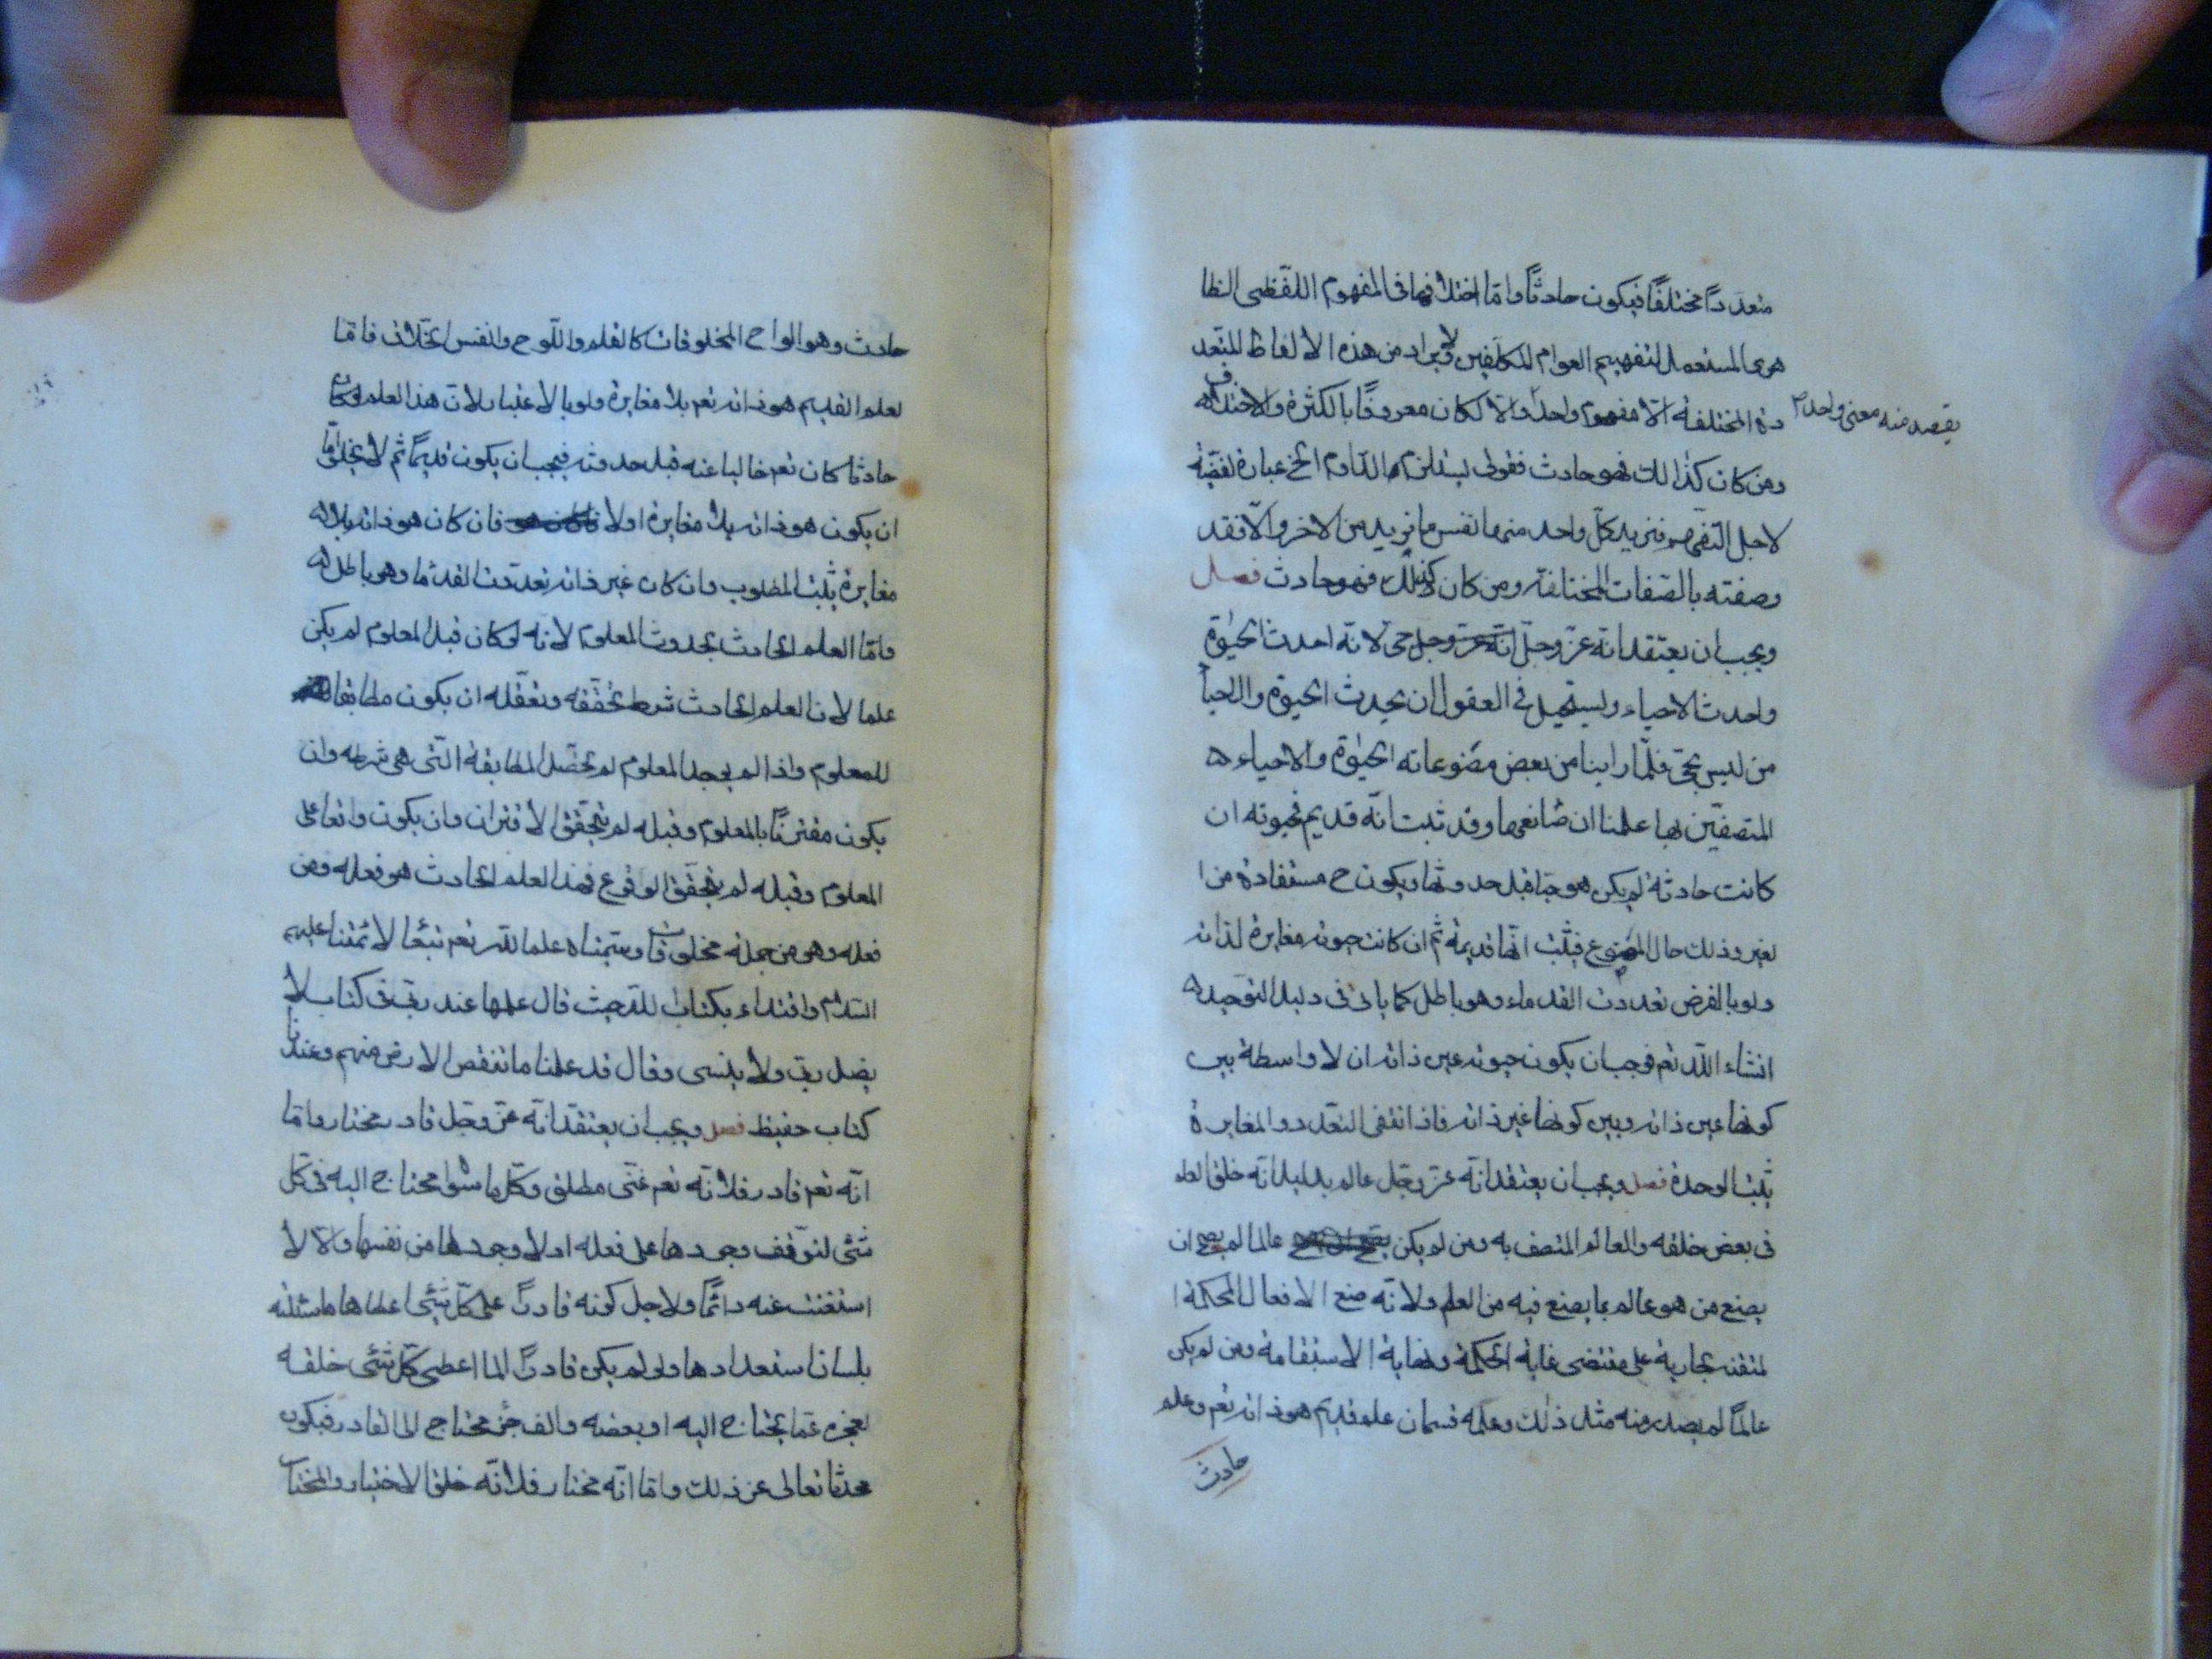 متعددًا مختلفًا فيكون حادثًا واما اختلافها فى المفهوم اللفظى الظا
هرى المستعمل لتفهيم العوام المكلفين لا يراد من هذه الالفاظ المتعد
دة المختلفة الا مفهوم واحد والا لكان معروفًا بالكثرة والاختلاف
يقصد منه معنى واحد
ومن كان كذالك فهو حادث فقولى
عبارة لفظية
لاجل التفهيم فنريد بكل واحد منها نفس ما نريد من الاخر والا فقد
وصفته بالصفات المختلفة ومن كان كذلك فهو حادث فصل
ويجب ان يعتقد انه عز وجل انه عز وجل حى لانه احدث الحيوة
واحدث الاحياء ويستحيل فى العقول ان يحدث الحيوة والاحيا
من ليس بحى فلما راينا من بعض مصنوعاته الحيوة والاحياء
المتصفين بها علمنا ان صانعها وقد ثبت انه قديم فحيوته ان
كانت حادثة لم يكن هو حيا قبل حدوثها ويكون ح مستفادة من ا
لغير وذلك حال المصنوع فيثبت انها قديمة ثم ان كانت حيوته مغايرة لذاته
ولو بالفرض تعددت القدماء وهو باطل كما ياتى فى دليل التوحيد
انشاء الله تعم فوجب ان يكون حيوته عين ذاته ان لا واسطة بين
كونها عين ذاته وبين كونها غير ذاته فاذا انتفى التعدد والمغايرة
يثبت الوحدة فصل ويجب ان يعتقد انه عز وجل عالم بدليل انه خلق العلم
فى بعض خلقه والعالم المتصف به ومن لم يكن عالما لم يصح ان
يصنع من هو عالم بما يصنع فيه من العلم ولانه صنع الافعال المحكمة ا
لمتقنه الجارية على مقتضى غاية الحكمة ونهاية الاستقامة ومن لم يكن
عالمًا لم يصدر منه مثل ذلك وعلمه قسمان علم قديم هو ذاته تعم وعلم
حادث
حادث وهو الواح المخلوقات كالقلم واللوح وانفس الخلائق فاما
لعلم القديم هو ذاته تعم بلا مغايرة ولو بالاعتبار لان هذا العلم لو كان
حادثا كان تعم خاليا عنه قبل حدوثه فيجب ان يكون قديمًا ثم لا يخلو اما
ان يكون هو ذاته بلا مغايرة اولا فان كان هو ذاته بلا
مغايرة يثبت المطلوب وان كان غير ذاته تعددت القدما وهو باطل
واما العلم الحادث بحدوث المعلوم لانه لو كان قبل المعلوم لم يكن
علما لان العلم الحادث شرط تحققه وتعقله ان يكون مطابقا
للمعلوم واذا لم يوجد المعلوم لم يحصل المطابقة التى هى شرطه وان
يكون مقترنًا بالمعلوم وقبله لم يتحقق الاقتران وان يكون واقعا على
المعلوم وقبله لم يتحقق الوقوع فهذا العلم الحادث هو فعله ومن
فعله وهو من جملة مخلوقاته وسميناه علما لله تعم تبعًا لائمتنا عليهم
السلام واقتداء بكتاب الله حيث قال علمها عند ربى فى كتاب لا
يضل ربى ولا ينسى وقال قد علمنا ما تنقص الارض منهم وعندنا
كتاب حفيظ فصل ويجب ان يعتقد انه عز وجل قادر مختار واما
انه تعم قادر فلانه تعم غنى مطلق وكل ما سواه محتاج اليه فى كل
شئ لتوقف وجودها على فعله اذ لا وجود لها من نفسها والا لا
استغنت عنه دائمًا ولاجل كونه قادرًا على كل شئ اعطاها ما سئلته
بلسان استعدادها ولو لم يكن قادرًا لما اعطى كل شئ خلقه
لعجزه عما يحتاج اليه او بعضه
محتاج الى القادر فيكون
محدثا تعالى عن ذلك واما انه مختار فلانه خلق الاختيار والمختار